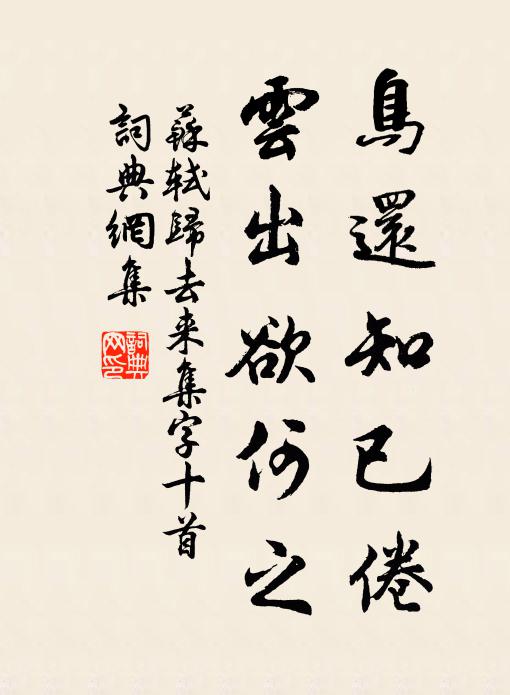 鳥還知已倦
雲出欲何之
蘇軾歸去来集字十首
詞典網集
詞典网印